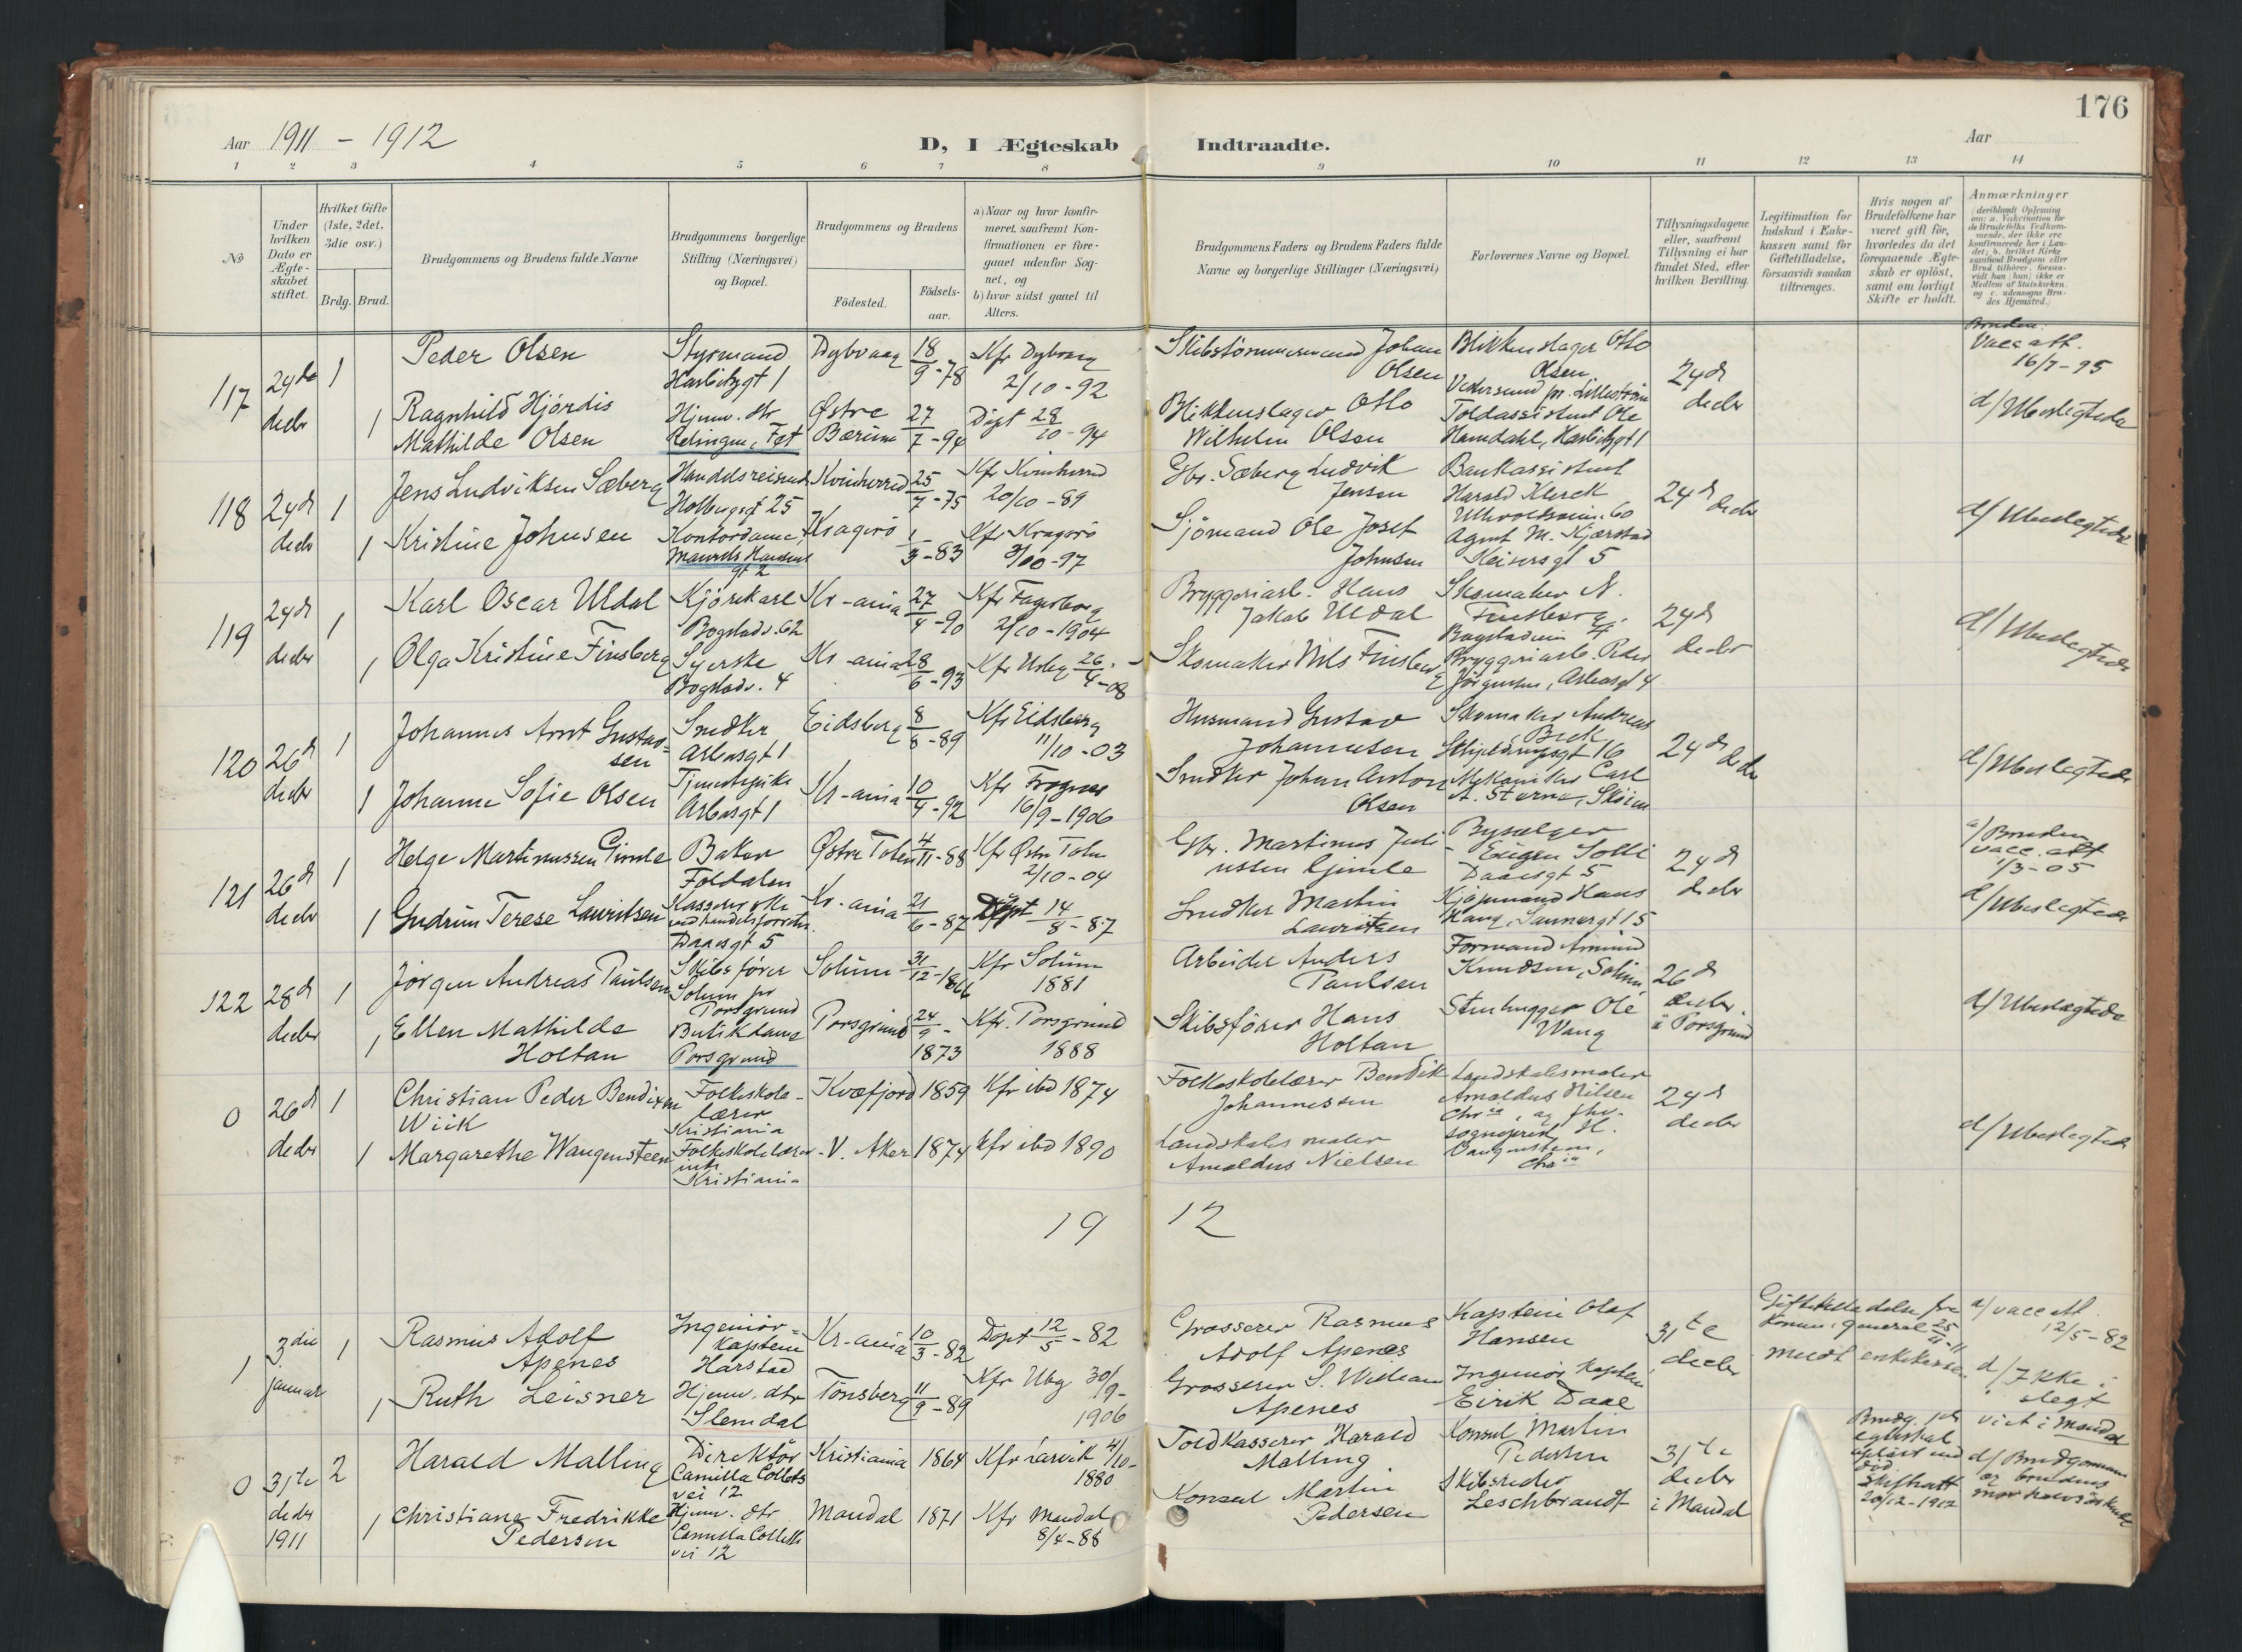 176
Aar 1911 - 1912
D, I Ægteskab Indtraadte.
Aar
1 2 3 4 5 6 7 8 9 10 11 12 13 14
No
Under hvilken Dato er Ægteskabet stiftet.
Hvilket Gifte (1ste, 2det, 3die osv.)
Brdg. Brud.
Brudgommens og Brudens fulde Navne
Brudgommens borgerlige Stilling (Næringsvei) og Bopæl.
Brudgommens og Brudens
Födested.
Födsels-aar.
a) Naar og hvor konfirmeret, saafremt Konfirmationen er foregaaet udenfor Sognet, og
b) hvor sidst gaaet til Alters.
Brudgommens Faders og Brudens Faders fulde Navne og borgerlige Stillinger (Næringsvei)
Forlovernes Navne og Bopæl.
Tillysningsdagene eller, saafremt Tillysning ei har fundet Sted, efter hvilken Bevilling.
Legitimation for Indskud i Enkekassen samt for Giftetilladelse, forsaavidt saadan tiltrænges.
Hvis nogen af Brudefolkene har været gift før, hvorledes da det foregaaende Ægteskab er oplöst, samt om lovligt Skifte er holdt.
Anmærkninger
117 24de decbr 1
Peder Olsen
Styrmand
Dybvaag 18/9-78
Kfr Dybvaag
2/10-92
Johan
Olsen
Blikkenslager Otto
Olsen
24d
decbr
Bruden:
Vacc att.
16/7-95
1 Ragnhild Hjördis
Mathilde Olsen
Hjemv. dtr
Fet
Østre Bærum 27/7-94
Döpt 28/10-94
Blikkenslager Otto
Wilhelm Olsen
Toldassistent Ole
d/ Ubeslegtede
118 24d decbr 1
Jens Ludviksen Sæberg
Handelsreisende
Holbergsgt 25
Kvinherred 25/7-75
Kfr Kvinherred
20/10-89
Gbr. Sæberg Ludvik
Jensen
Bankassistent
Harald Klerck
Ullevoldsveien 60
24d decbr
d/ Ubeslegtede
1 Kristine Johnsen
Kontordame
gt 2
Kragerö 1/3-83
Kfr Kragerö
3/10-97
Sjömand Ole Josef
Johnsen
Agent M. Kjærstad
Keisersgt 5
119 24d decbr 1
Karl Oscar Uldal
Kjörekarl
Bogstadv. 62
Kr-ania 27/4-90
Kfr Fagerborg
2/10-1904
Bryggeriarb. Hans
Jakob Uldal
Skomaker N.
Finsberg
24d
decbr
d/ Ubeslegtede
1 Olga Kristine Finsberg
Syerske
Bogstadv. 4
Kr-ania 28/6-93
Kfr Urbg 26/4-08
Skomaker Nils Finsberg
Bryggeriarb. Peder
Jörgensen, Arbosgt 4
120 26d decbr 1
Johannes Arnt Gustavsen
Snedker
Arbosgt 1
Eidsberg 8/8-89
Kfr Eidsberg
11/10-03
Husmand Gustav
Johannesen
Skomaker Andreas
Beck
24d decbr
d/ Ubeslegtede
1 Johanne Sofie Olsen
Tjenestepike
Arbosgt 1
Kr-ania 10/4-92
Kfr Frogner
16/9-1906
Snedker Johan Anton
Olsen
Mekaniker Carl
A. Sterner, Sköien
121 26d decbr 1
Helge Martinussen Gimle
Baker
Foldalen
Østre Toten 4/11-88
Kfr Østre Toten
2/10-04
Gbr. Martinus Juliussen Gjimle
Bysælger
Eugen Solli
Daaesgt 5
24d
decbr
a/ Bruden
vacc. att
1/3-05
1 Gudrun Terese Lauritsen
Daaesgt 5
Kr-ania 21/6-87
Döpt 14/8-87
Snedker Martin
Lauritsen
Kjöpmand Hans
Haug, Sannergt 15
d/ Ubeslegtede
122 28d decbr 1
Jörgen Andreas Paulsen
Skibsförer
Solum pr
Porsgrund
Solum 31/12-1866
Kfr Solum
1881
Arbeider Anders
Paulsen
Formand Amund
Knudsen, Solum
26d
decbr.
i Porsgrund
d/ Ubeslægtede
1 Ellen Mathilde
Holtan
Butikdame
Porsgrund
Porsgrund 24/9-1873
Kfr. Porsgrund
1888
Skibsförer Hans
Holtan
Stenhugger Ole
Wang
0 26d decbr 1
Christian Peder Bendixen
Wiik
Folkeskolelærer
Kristiania
Kvæfjord 1859
Kfr ibd 1874
Folkeskolelærer Bendik
Johannessen
Landskabsmaler
Amaldus Nilsen
24d
decbr
d/ Ubeslegtede
1 Margarethe Wangensteen
Folkeskolelærerinde
Kristiania
V. Aker 1874
kfr ibd 1890
Landskabs maler
Amaldus Nielsen
1912
1 3die januar 1
Rasmus Adolf
Apenes
Ingeniör-
kaptein
Harstad
Kr-ania 10/3-82
Döpt 12/5-82
Grosserer Rasmus
Adolf Apenes
Kaptein Olaf
Hansen
31te
decbr
Giftetilladelse fra
general 25/11-11
a/ vacc att.
12/5-82
1 Ruth Leisner
Hjemv. dtr
Slemdal
Tönsberg 11/9-89
Kfr Ubg 30/9-
1906
Grosserer S. William
Apenes
Ingeniör kaptein
Eirik Daae
d/ Ikke i
slegt
0 31te decbr 1911 2
Harald Malling
Direktör
Camilla Colletts
vei 12
Kristiania 1864
Kfr Larvik 4/10-
1880
Toldkasserer Harald
Malling
Konsul Martin
Pedersen
31te
decbr
i Mandal
Brudg. 1ste
egteskab
död
Skifteatt
20/12-1912
viet i Mandal
d/ Brudgommen
er brudens
1 Christiane Fredrikke
Pedersen
Hjemv. dtr
Camilla Colletts
vei 12
Mandal 1871
Kfr Mandal
8/4-88
Konsul Martin
Pedersen
Skibsreder
Leschbrandt